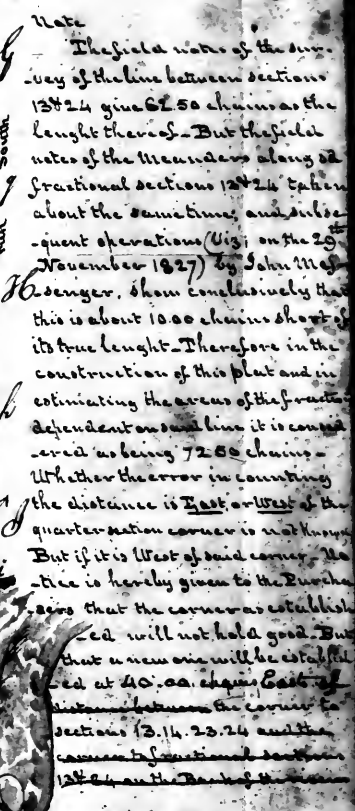 Note
The field notes of the sur-
-vey of the line between sections
13 & 24 give 62.50 chains as the
lenght thereof_ But the field
notes of the Meanders along sd
fractional sections 13 & 24 taken
about the same time, and subse
-quent operations (Viz; on the 29th
November 1827) by John Mes-
-senger, show conclusively that
this is about 10.00 chains short of
its true lenght_ Therefore in the
construction of this plat and in
estimating the areas of the fractio
dependent on said line it is consid
-ered as being 72.50 chains_
Whether the error in counting
the distance is East or West of the
quarter section corner is not Known
But if it is West of said corner, No
-tice is hereby given to the Purcha
-sers that the corner as establish
-ed will not hold good. But
that a new one will be establish
-ed at 40.00. chains East of
distance between the corner to
sections 13.14.23.24 and the
corner to fractional sections
13 & 24 on the Bank of the